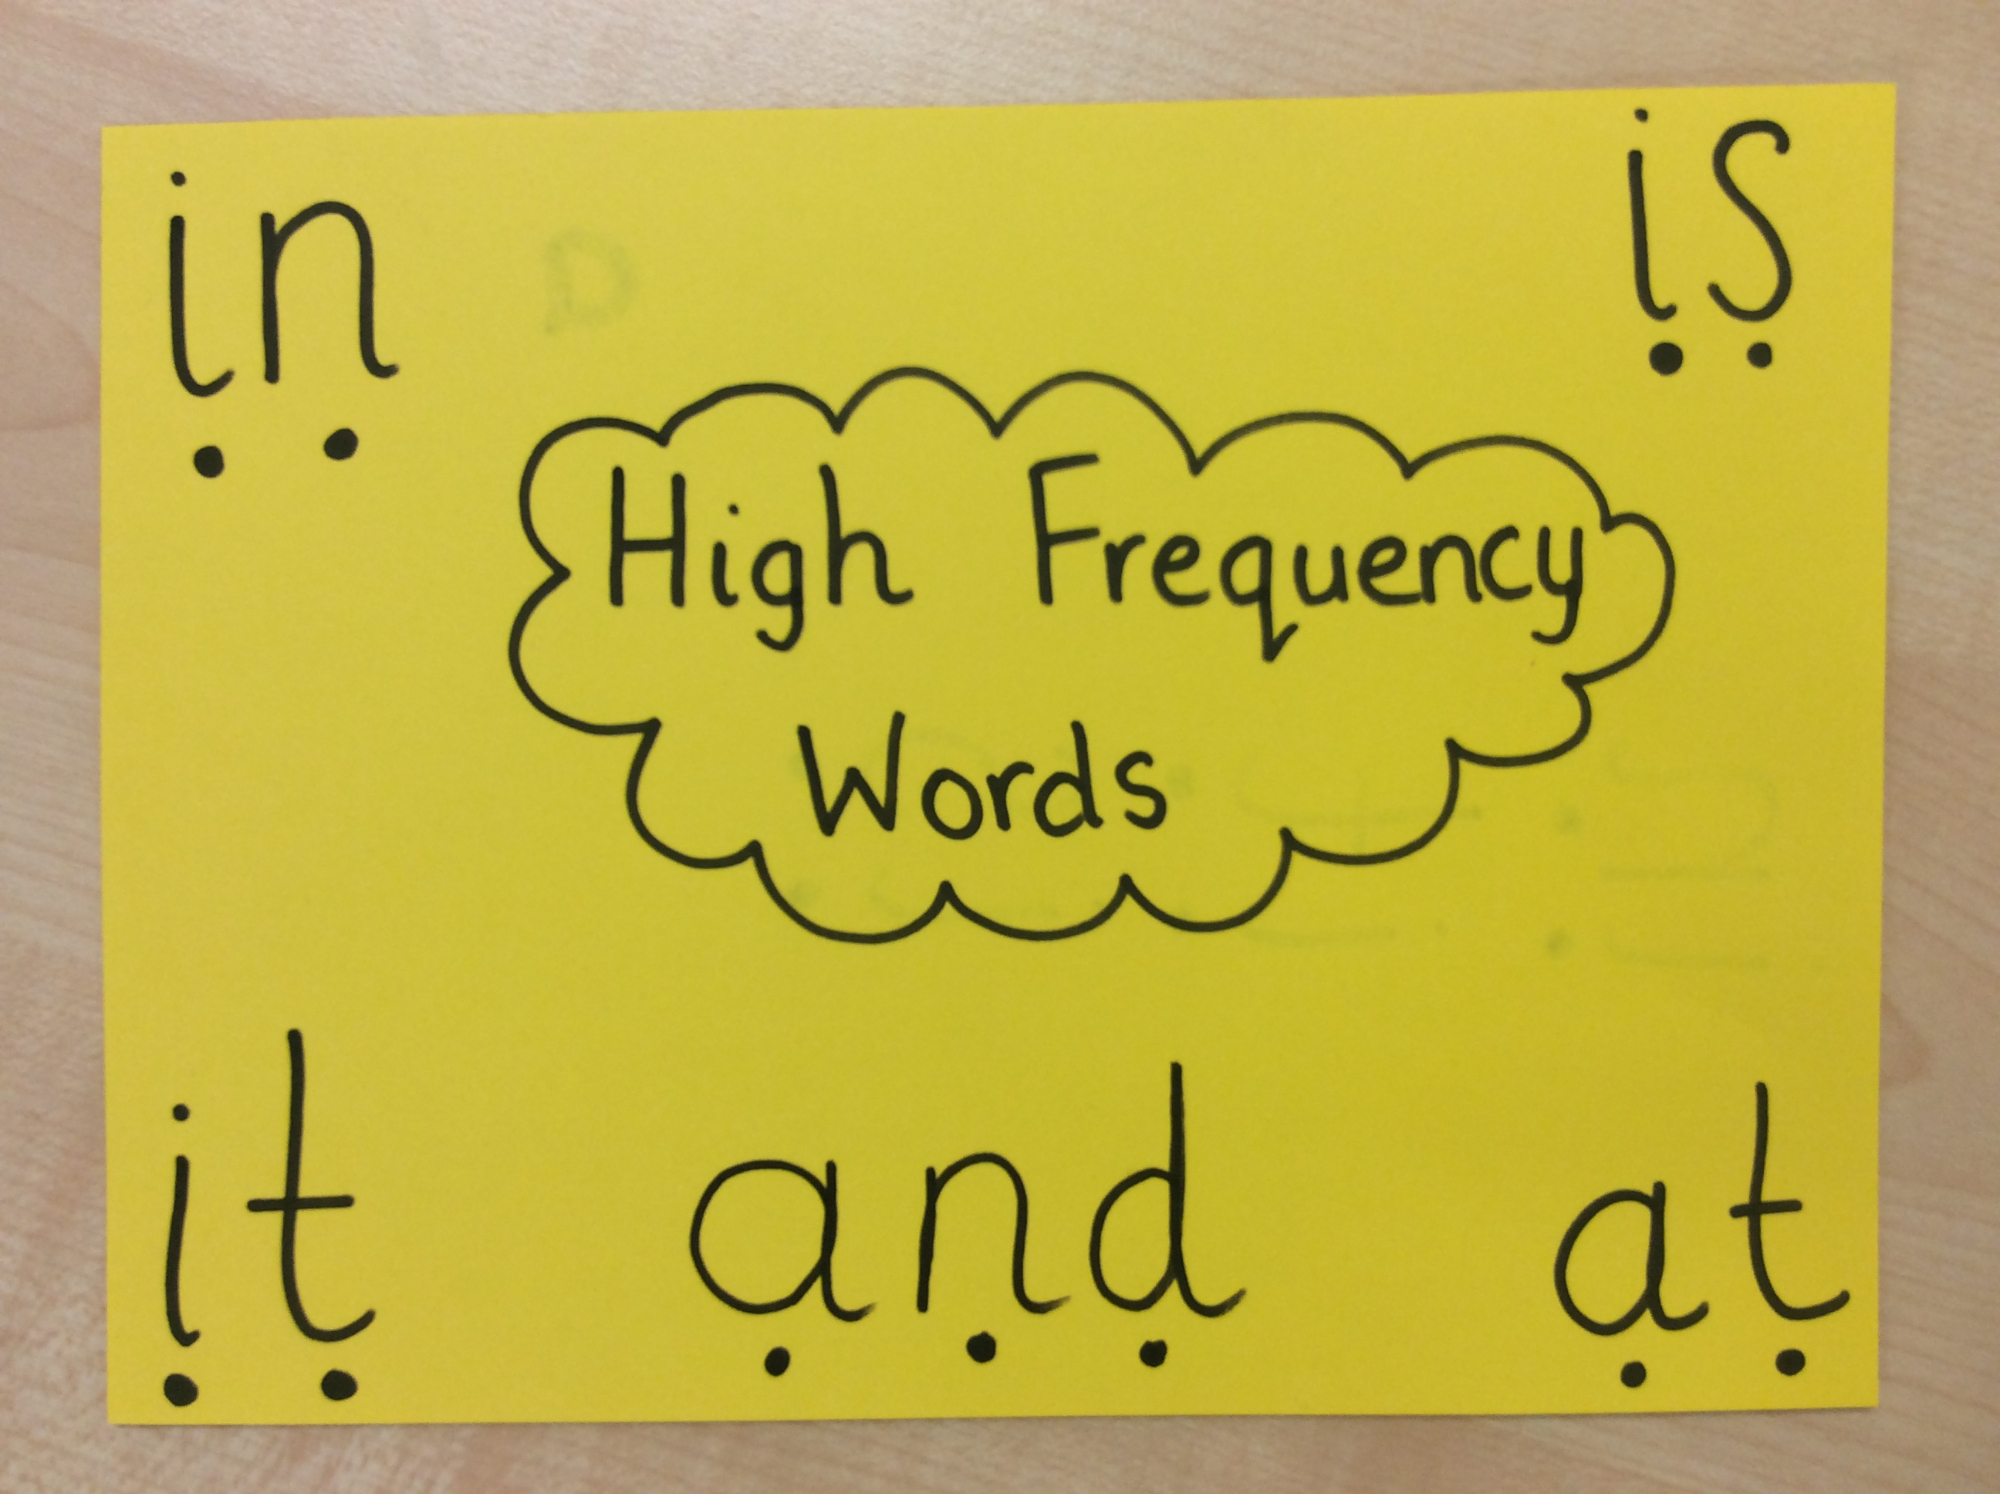 in is
High Frequency
Words
it and at